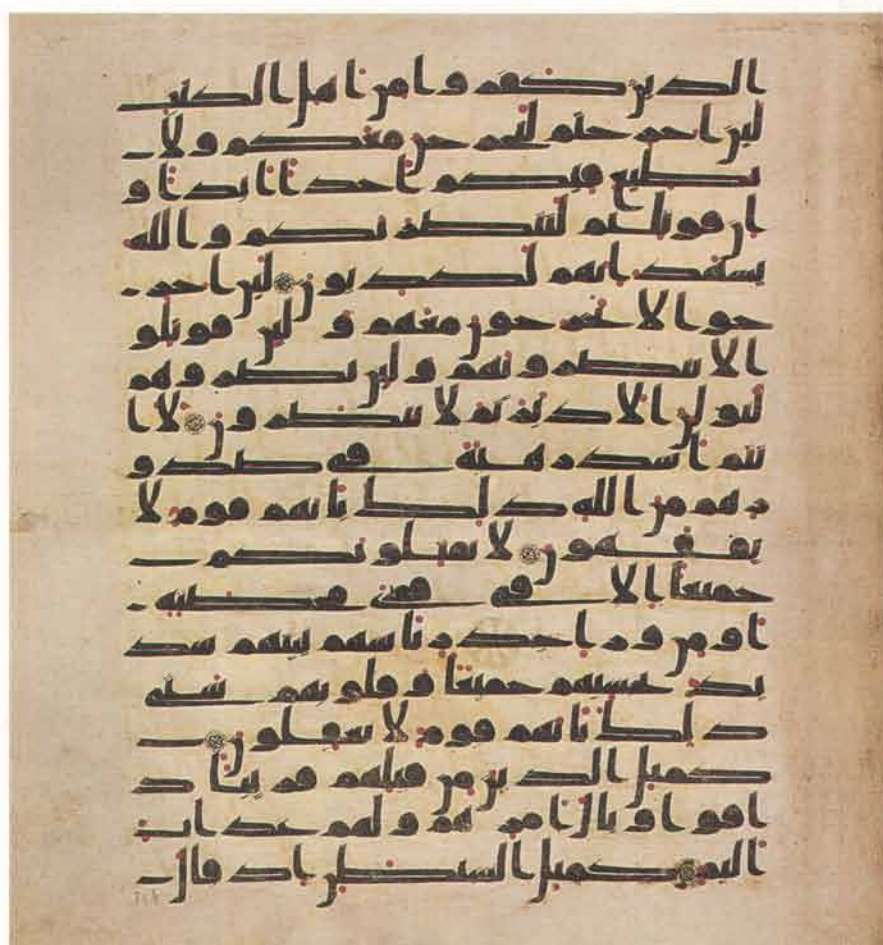 الذين كفروا من اهل الكتب
لئن اخرجتم لنخرجن معكم ولا
نطيع فيكم احدا ابدا و
ان قوتلتم لننصرنكم والله
يشهد انهم لكذبون لئن اخر
جوا لا يخرجون معهم و لئن قوتلو
ا لا ينصرونهم ولئن نصروهم
ليولن الادبر ثم لا ينصرون لا ا
نتم اشد رهبة في صدو
رهم من الله ذلك بانهم قوم لا
يفقهون لا يقتلونكم
جميعا الا في قرى محصنة
او من ورا جدر باسهم بينهم شد
يد تحسبهم جميعا وقلوبهم شتى
ذلك بانهم قوم لا يعقلون
كمثل الذين من قبلهم قريبا ذ
اقوا وبال امرهم ولهم عذاب
اليم كمثل الشيطن اذ قال